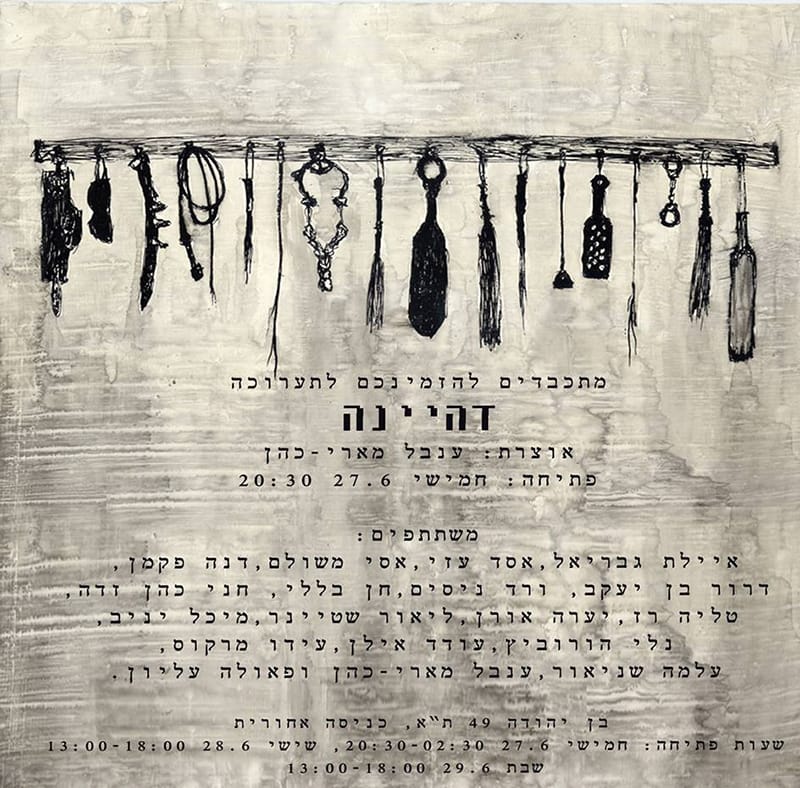 מתכבדים להזמינכם לתערוכה
דהיינה
אוצרת: ענבל מארי-כהן
פתיחה: חמישי 27.6 20:30
משתתפים:
איילת גבריאל,אסד עזי,אסי משולם,דנה פקמן,
דרור בן יעקב, ורד ניסים,חן בללי, חני כהן זדה,
טליה רז,יערה אורן,ליאור שטיינר,מיכל יניב,
נלי הורוביץ,עודד אילן,עידו מרקוס,
עלמה שניאור,ענבל מארי-כהן ופאולה עליון.
בן יהודה 49 ת"א, כניסה אחורית
שעות פתיחה: חמישי 27.6 20:30-02:30, שישי 28.6 13:00-18:00
שבת 29.6 13:00-18:00